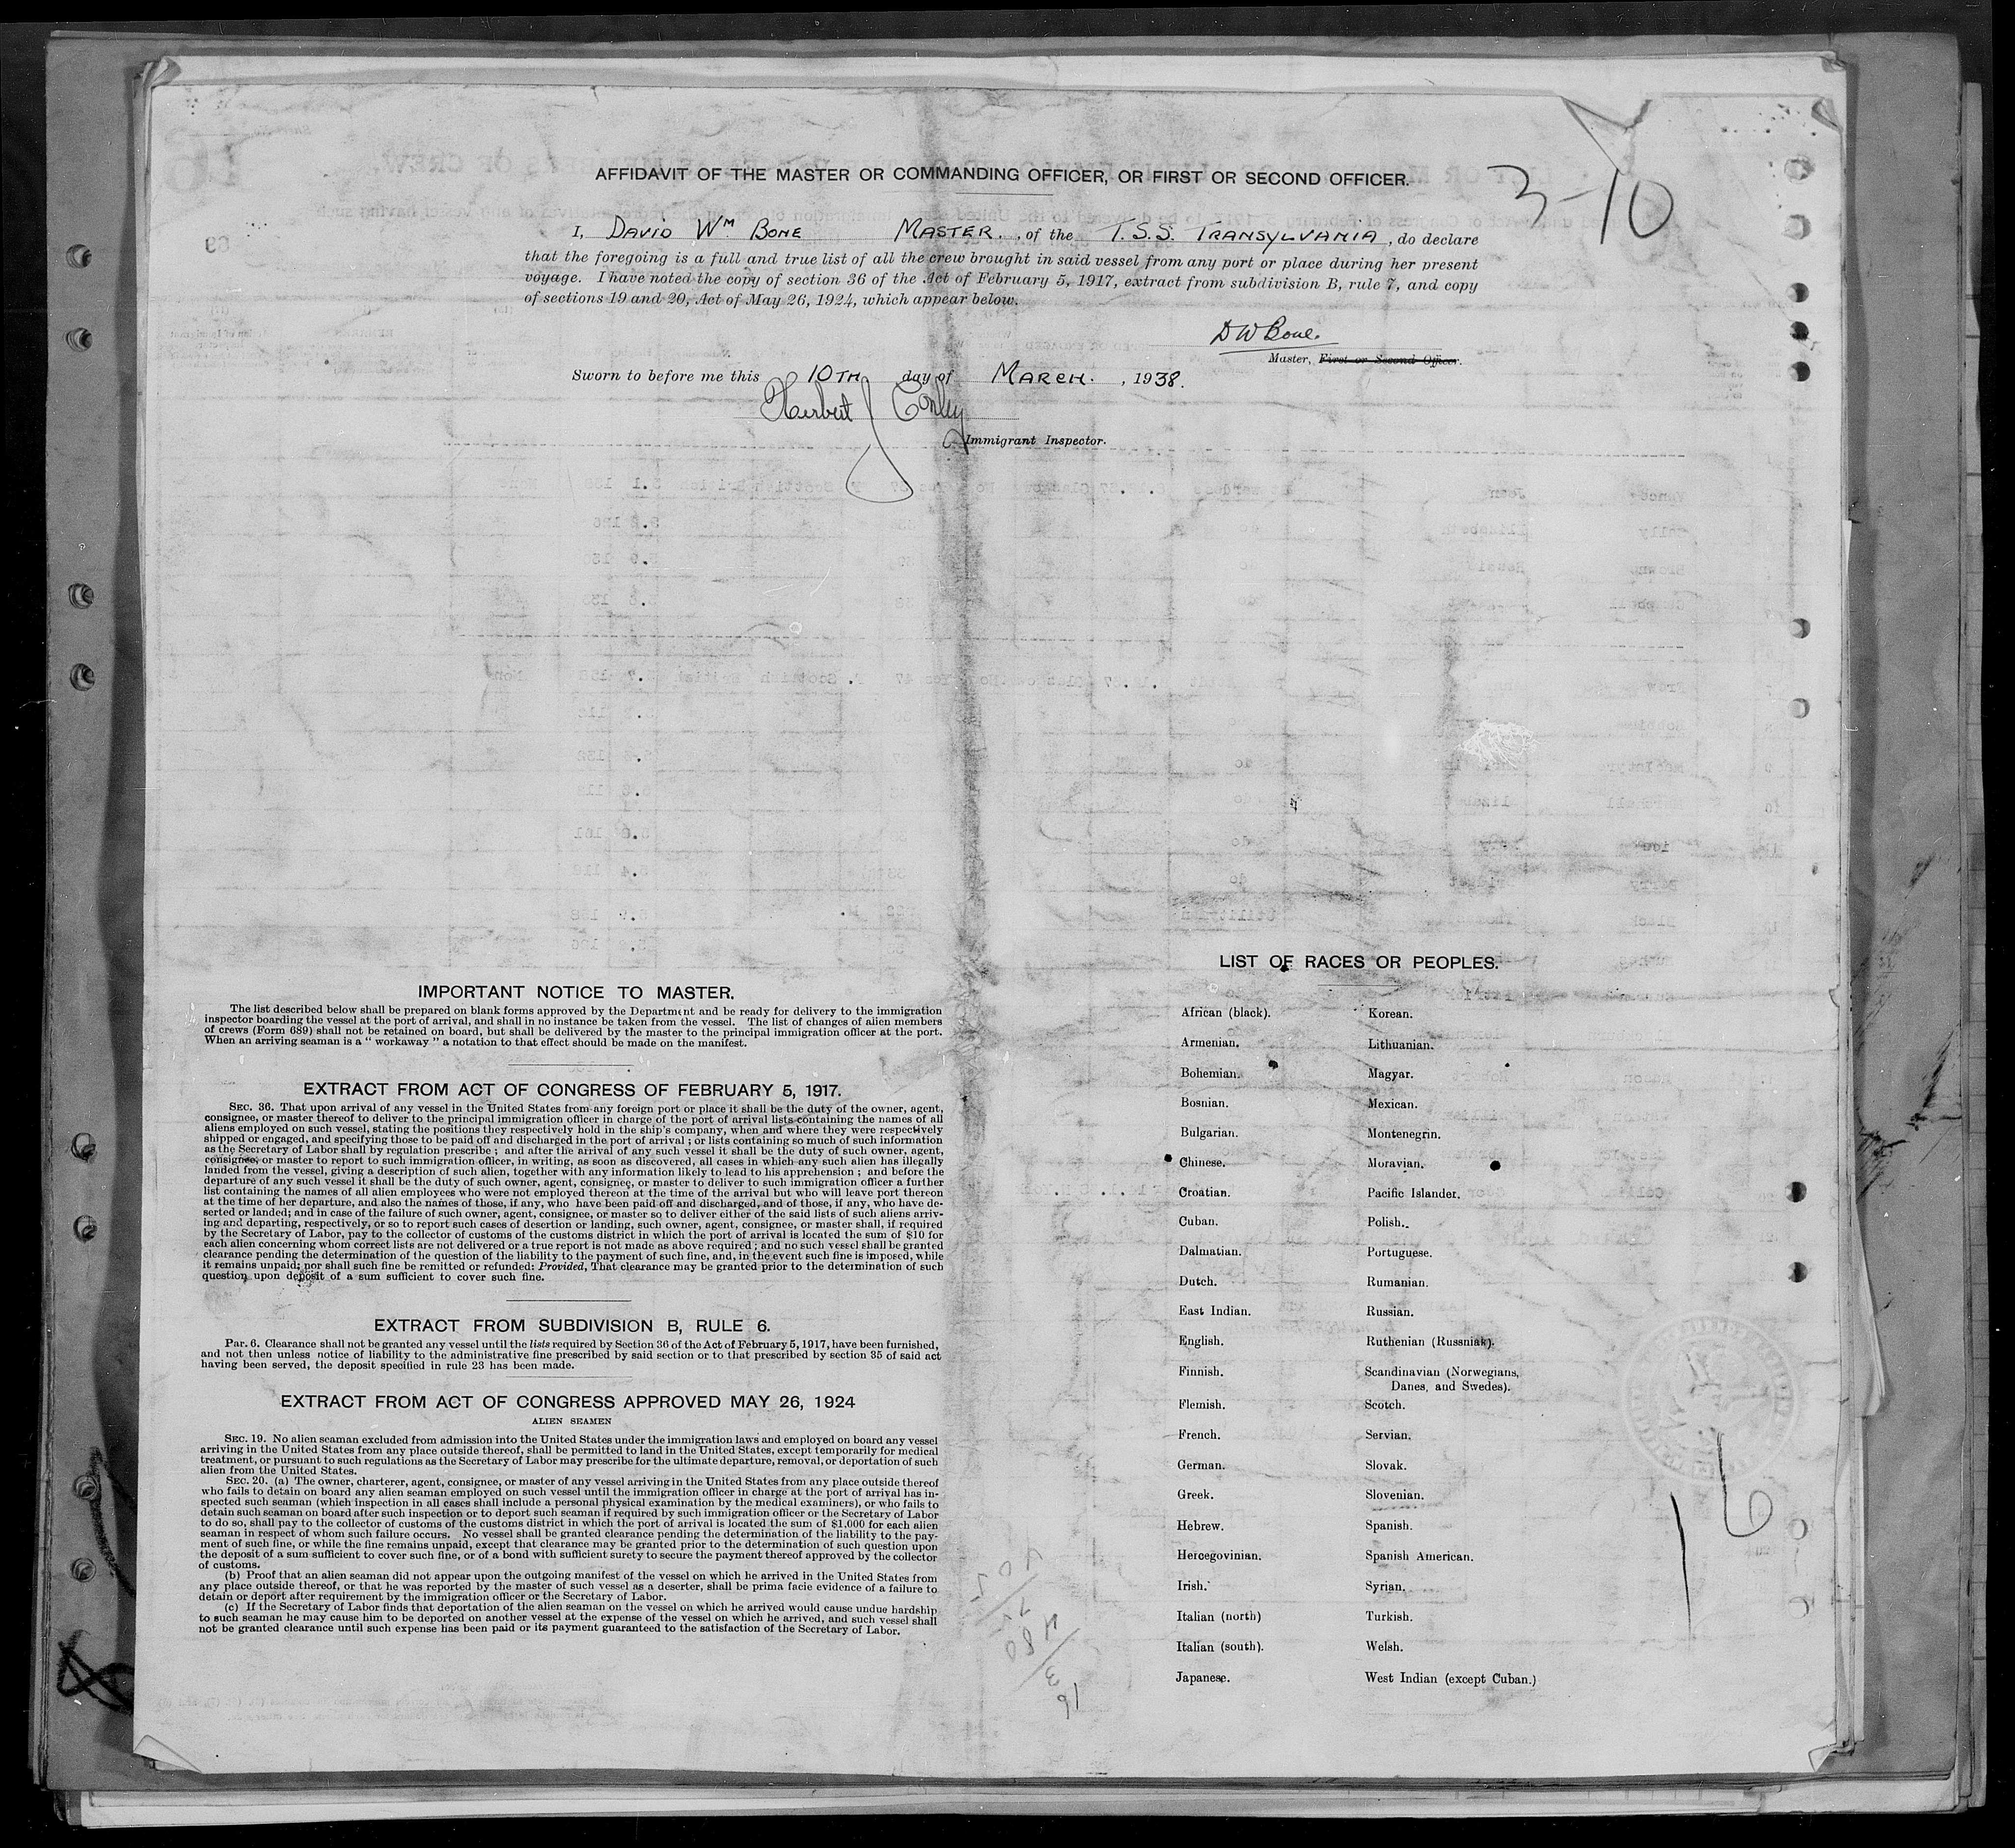 AFFIDAVIT OF THE MASTER OR COMMANDING OFFICER, OR FIRST OR SECOND OFFICER.
3-10
I, DAVID WM BONE MASTER. , of the T.S.S. TRANSYLVANIA , do declare
that the foregoing is a full and true list of all the crew brought in said vessel from any port or place during her present
voyage. I have noted the copy of section 36 of the Act of February 5, 1917, extract from subdivision B, rule 7, and copy
of sections 19 and 20, Act of May 26, 1924, which appear below.
D W Bone.
Master, First or Second Officer.
Sworn to before me this 10TH day of MARCH. , 1938.
Herbert J Conley
Immigrant Inspector.
IMPORTANT NOTICE TO MASTER.
The list described below shall be prepared on blank forms approved by the Department and be ready for delivery to the immigration
inspector boarding the vessel at the port of arrival, and shall in no instance be taken from the vessel. The list of changes of alien members
of crews (Form 689) shall not be retained on board, but shall be delivered by the master to the principal immigration officer at the port.
When an arriving seaman is a " workaway " a notation to that effect should be made on the manifest.
EXTRACT FROM ACT OF CONGRESS OF FEBRUARY 5, 1917.
SEC. 36. That upon arrival of any vessel in the United States from any foreign port or place it shall be the duty of the owner, agent,
consignee, or master thereof to deliver to the principal immigration officer in charge of the port of arrival lists containing the names of all
aliens employed on such vessel, stating the positions they respectively hold in the ship's company, when and where they were respectively
shipped or engaged, and specifying those to be paid off and discharged in the port of arrival ; or lists containing so much of such information
as the Secretary of Labor shall by regulation prescribe ; and after the arrival of any such vessel it shall be the duty of such owner, agent,
consignee, or master to report to such immigration officer, in writing, as soon as discovered, all cases in which any such alien has illegally
landed from the vessel, giving a description of such alien, together with any information likely to lead to his apprehension ; and before the
departure of any such vessel it shall be the duty of such owner, agent, consignee, or master to deliver to such immigration officer a further
list containing the names of all alien employees who were not employed thereon at the time of the arrival but who will leave port thereon
at the time of her departure, and also the names of those, if any, who have been paid off and discharged, and of those, if any, who have de-
serted or landed; and in case of the failure of such owner, agent, consignee, or master so to deliver either of the said lists of such aliens arriv-
ing and departing, respectively, or so to report such cases of desertion or landing, such owner, agent, consignee, or master shall, if required
by the Secretary of Labor, pay to the collector of customs of the customs district in which the port of arrival is located the sum of $10 for
each alien concerning whom correct lists are not delivered or a true report is not made as above required ; and no such vessel shall be granted
clearance pending the determination of the question of the liability to the payment of such fine, and, in the event such fine is imposed, while
it remains unpaid; nor shall such fine be remitted or refunded: Provided, That clearance may be granted prior to the determination of such
question upon deposit of a sum sufficient to cover such fine.
EXTRACT FROM SUBDIVISION B, RULE 6.
Par. 6. Clearance shall not be granted any vessel until the lists required by Section 36 of the Act of February 5, 1917, have been furnished,
and not then unless notice of liability to the administrative fine prescribed by said section or to that prescribed by section 35 of said act
having been served, the deposit specified in rule 23 has been made.
EXTRACT FROM ACT OF CONGRESS APPROVED MAY 26, 1924
ALIEN SEAMEN
SEC. 19. No alien seaman excluded from admission into the United States under the immigration laws and employed on board any vessel
arriving in the United States from any place outside thereof, shall be permitted to land in the United States, except temporarily for medical
treatment, or pursuant to such regulations as the Secretary of Labor may prescribe for the ultimate departure, removal, or deportation of such
alien from the United States.
SEC. 20. (a) The owner, charterer, agent, consignee, or master of any vessel arriving in the United States from any place outside thereof
who fails to detain on board any alien seaman employed on such vessel until the immigration officer in charge at the port of arrival has in-
spected such seaman (which inspection in all cases shall include a personal physical examination by the medical examiners), or who fails to
detain such seaman on board after such inspection or to deport such seaman if required by such immigration officer or the Secretary of Labor
to do so, shall pay to the collector of customs of the customs district in which the port of arrival is located the sum of $1,000 for each alien
seaman in respect of whom such failure occurs. No vessel shall be granted clearance pending the determination of the liability to the pay-
ment of such fine, or while the fine remains unpaid, except that clearance may be granted prior to the determination of such question upon
the deposit of a sum sufficient to cover such fine, or of a bond with sufficient surety to secure the payment thereof approved by the collector
of customs.
(b) Proof that an alien seaman did not appear upon the outgoing manifest of the vessel on which he arrived in the United States from
any place outside thereof, or that he was reported by the master of such vessel as a deserter, shall be prima facie evidence of a failure to
detain or deport after requirement by the immigration officer or the Secretary of Labor.
(c) If the Secretary of Labor finds that deportation of the alien seaman on the vessel on which he arrived would cause undue hardship
to such seaman he may cause him to be deported on another vessel at the expense of the vessel on which he arrived, and such vessel shall
not be granted clearance until such expense has been paid or its payment guaranteed to the satisfaction of the Secretary of Labor.
LIST OF RACES OR PEOPLES.
African (black).
Armenian.
Bohemian.
Bosnian.
Bulgarian.
Chinese.
Croatian.
Cuban.
Dalmatian.
Dutch.
East Indian.
English.
Finnish.
Flemish.
French.
German.
Greek.
Hebrew.
Hercegovinian.
Irish.
Italian (north)
Italian (south).
Japanese.
Korean.
Lithuanian.
Magyar.
Mexican.
Montenegrin.
Moravian.
Pacific Islander.
Polish.
Portuguese.
Rumanian.
Russian.
Ruthenian (Russniak).
Scandinavian (Norwegians,
Danes, and Swedes).
Scotch.
Servian.
Slovak.
Slovenian.
Spanish.
Spanish American.
Syrian.
Turkish.
Welsh.
West Indian (except Cuban.)
16